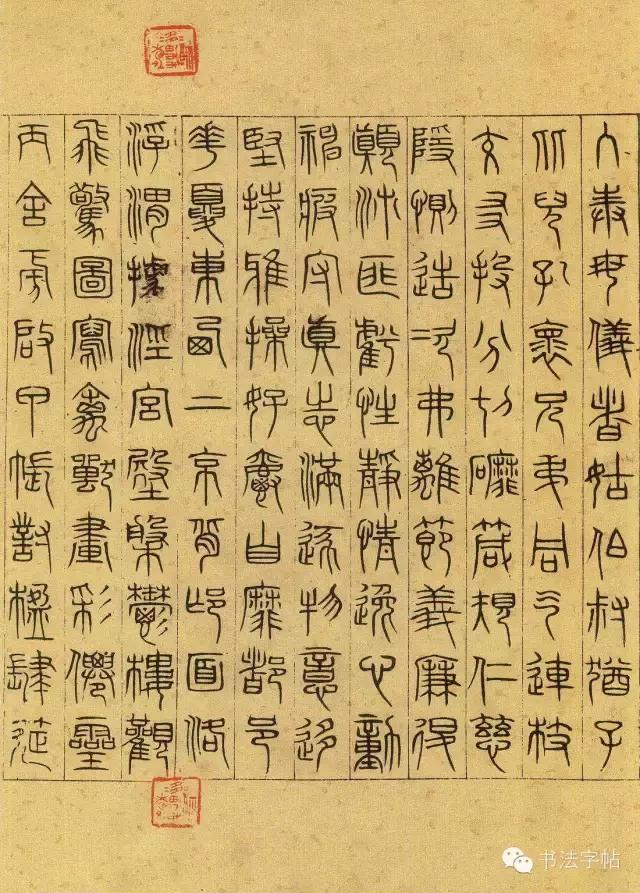 入奉母儀者姑伯叔猶子
比兒孔懷兄弟同气連枝
交友投分切磨箴規仁慈
隱惻造次弗離節義廉退
顛沛匪虧性靜情逸心動
神疲守真志滿逐物意移
堅持雅操好爵自靡都邑
華夏東西二京背邙面洛
浮渭據涇宮殿槃鬱樓觀
飛驚圖寫禽獸畫彩僊靈
丙舍旁啟甲帳對楹肆筵
书法字帖